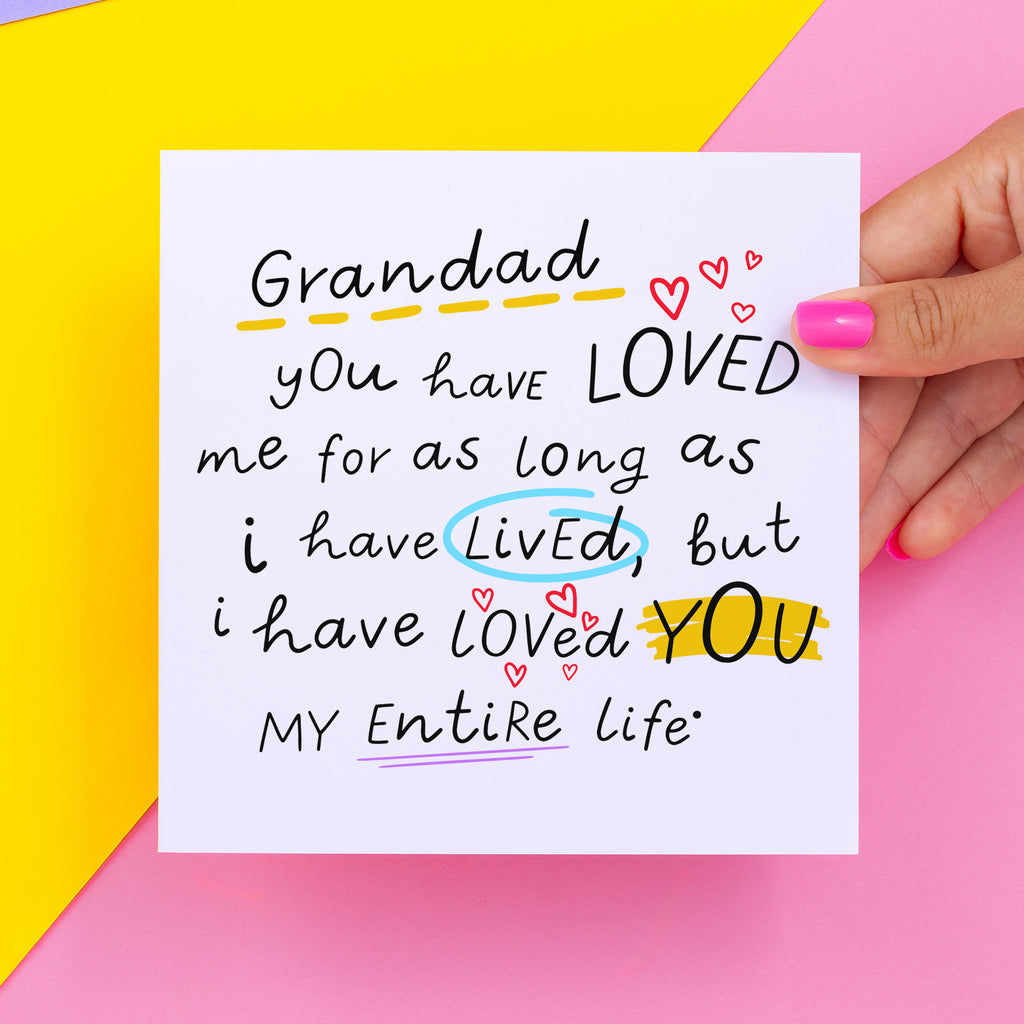 Grandad
yOu havE LOVED
me for as long as
i have LivEd, but
i have lOVed YOU
MY EntiRe life.